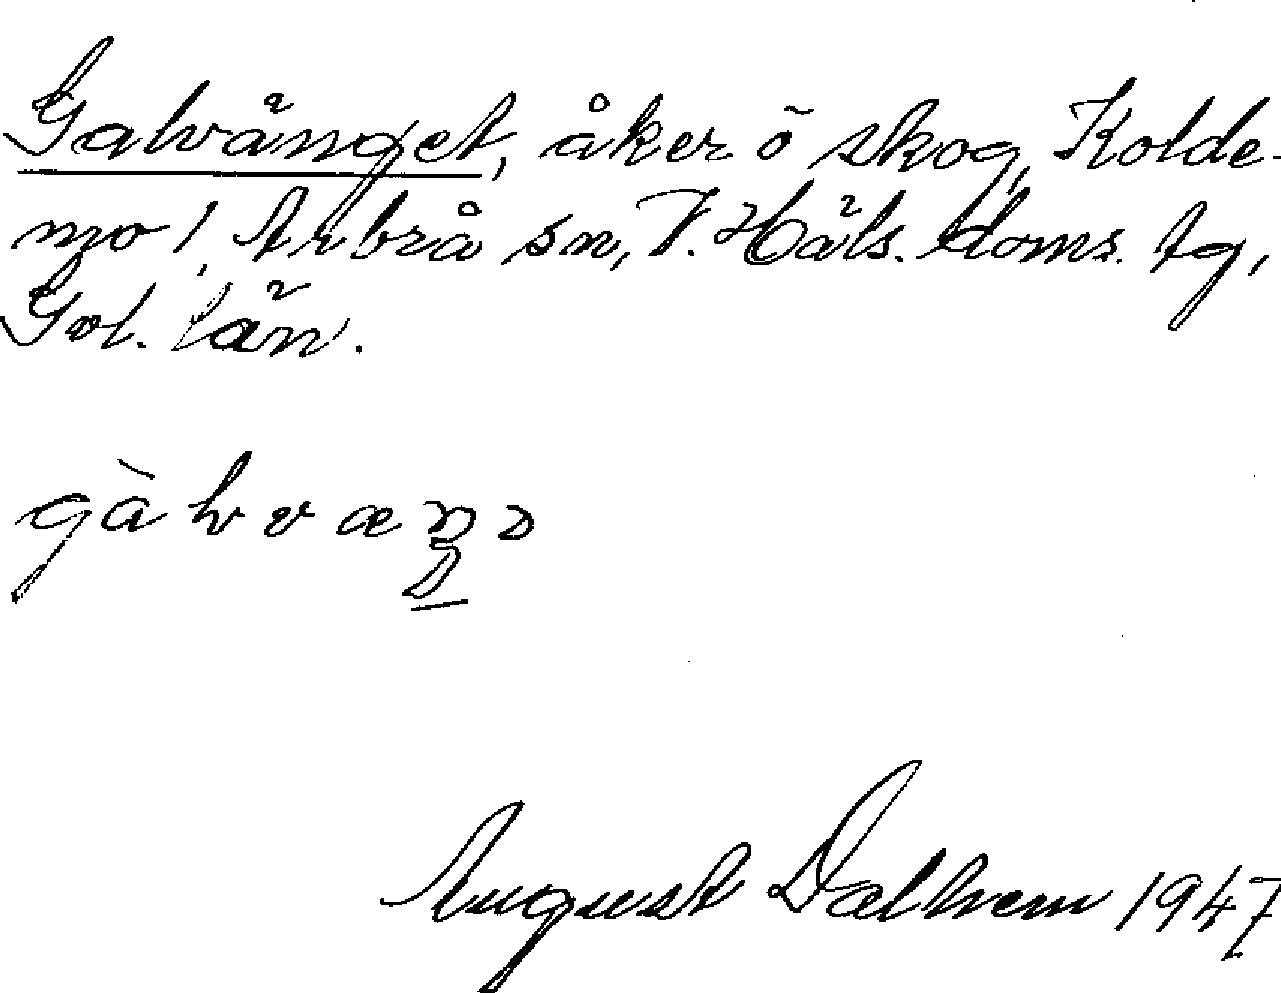 Galvänget, åker o skog, Kolde-
mo 1, Arbrå sn, V. Häls. doms. tg,
Gvl. län.
August Dalhem 1947